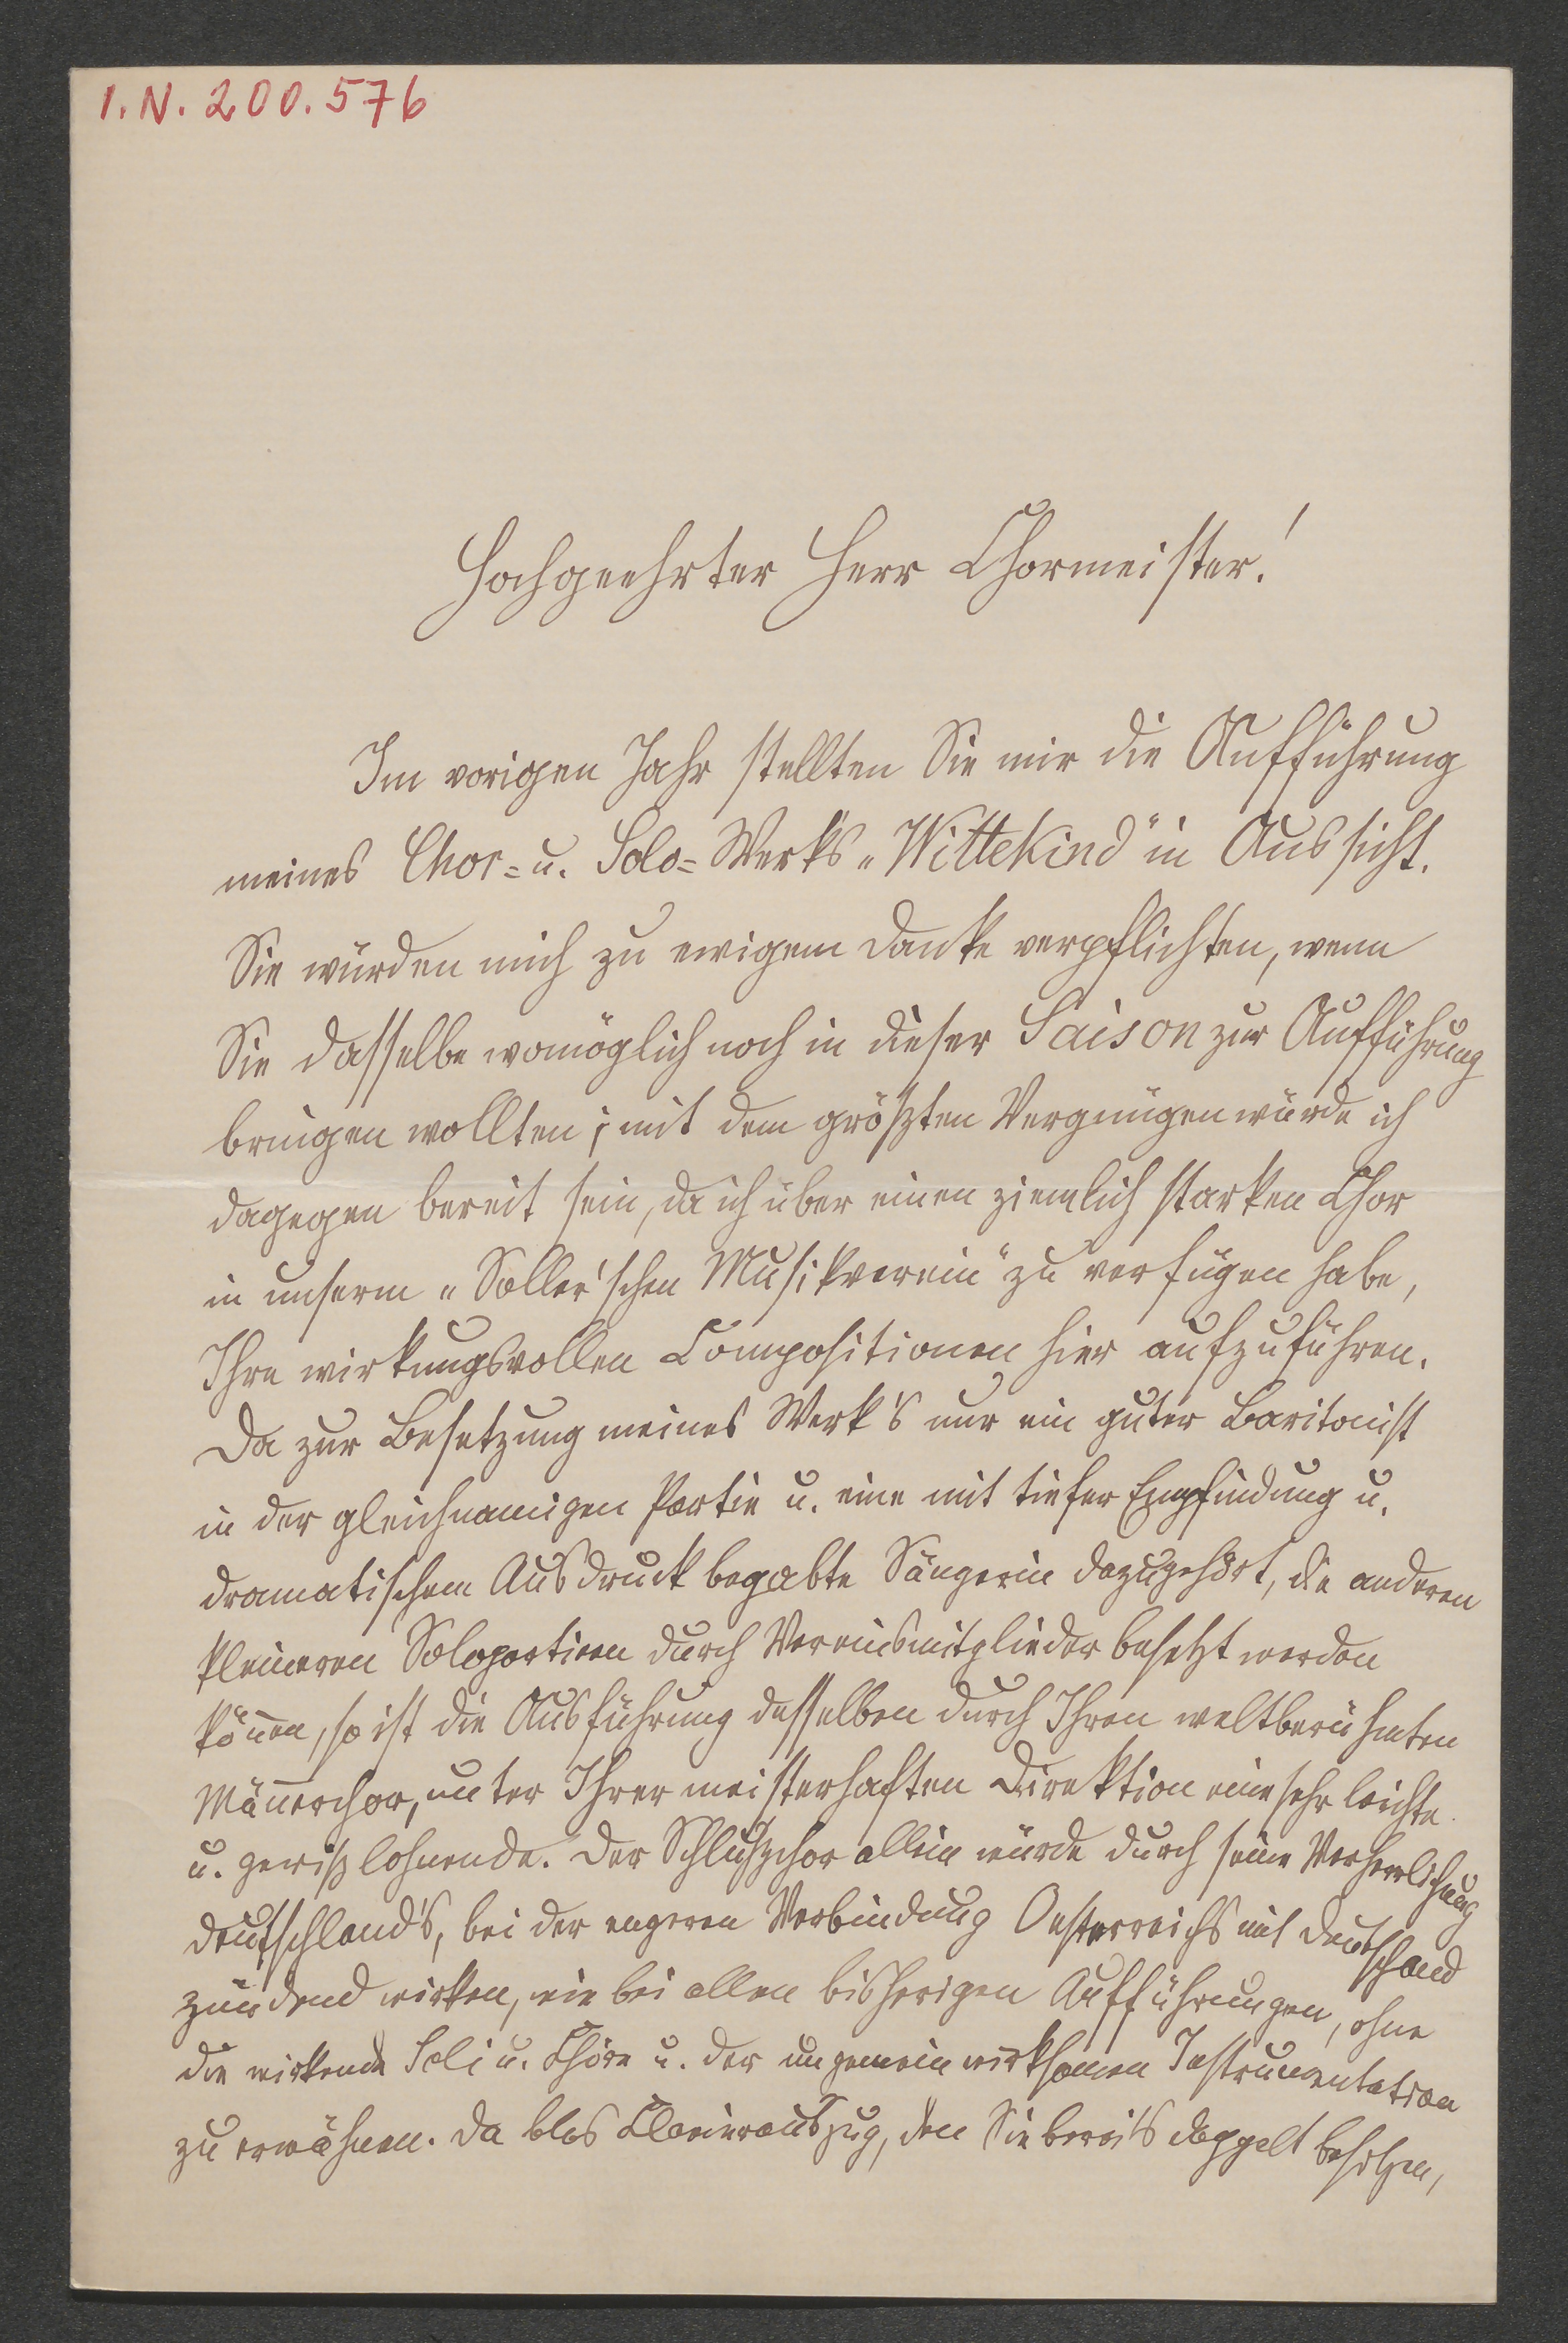 I.N. 200.576
Hochgeehrter Herr Chormeister!
Im vorigen Jahr stellten Sie mir die Aufführung
meines Chor- u. Solo-Werk's „Wittekind" in Aussicht.
Sie würden mich zu ewigem Danke verpflichten, wenn
Sie dasselbe womöglich noch in dieser Saison zur Aufführung
bringen wollten; mit dem größten Vergnügen würde ich
dagegen bereit sein, da ich über einen ziemlich starken Chor
in unserm „Soller'schen Musikverein" zu verfügen habe,
Ihre wirkungsvollen Compositionen hier aufzuführen.
Da zur Besetzung meines Werk's nur ein guter Baritonist
in der gleichnamigen Partie u. eine mit tiefer Empfindung u.
dramatischem Ausdruck begabte Sängerin dazugehört, die anderen
kleineren Solopartieen durch Vereinsmitglieder besetzt werden
können, so ist die Ausführung desselben durch Ihren weltberühmten
Männerchor, unter Ihrer meisterhaften Direktion eine sehr leichte
u. gewiß lohnende. Der Schlußchor allein würde durch seine Verherrlichung
Deutschland's, bei der engeren Verbindung Oesterreichs mit Deutschland
zündend wirken, wie bei allen bisherigen Aufführungen, ohne
die wirkende Soli u. Chöre u. der ungemein wirksamen Instrumentation
zu erwähnen. Da blos Clavierauszug, den Sie bereits doppelt besitzen,